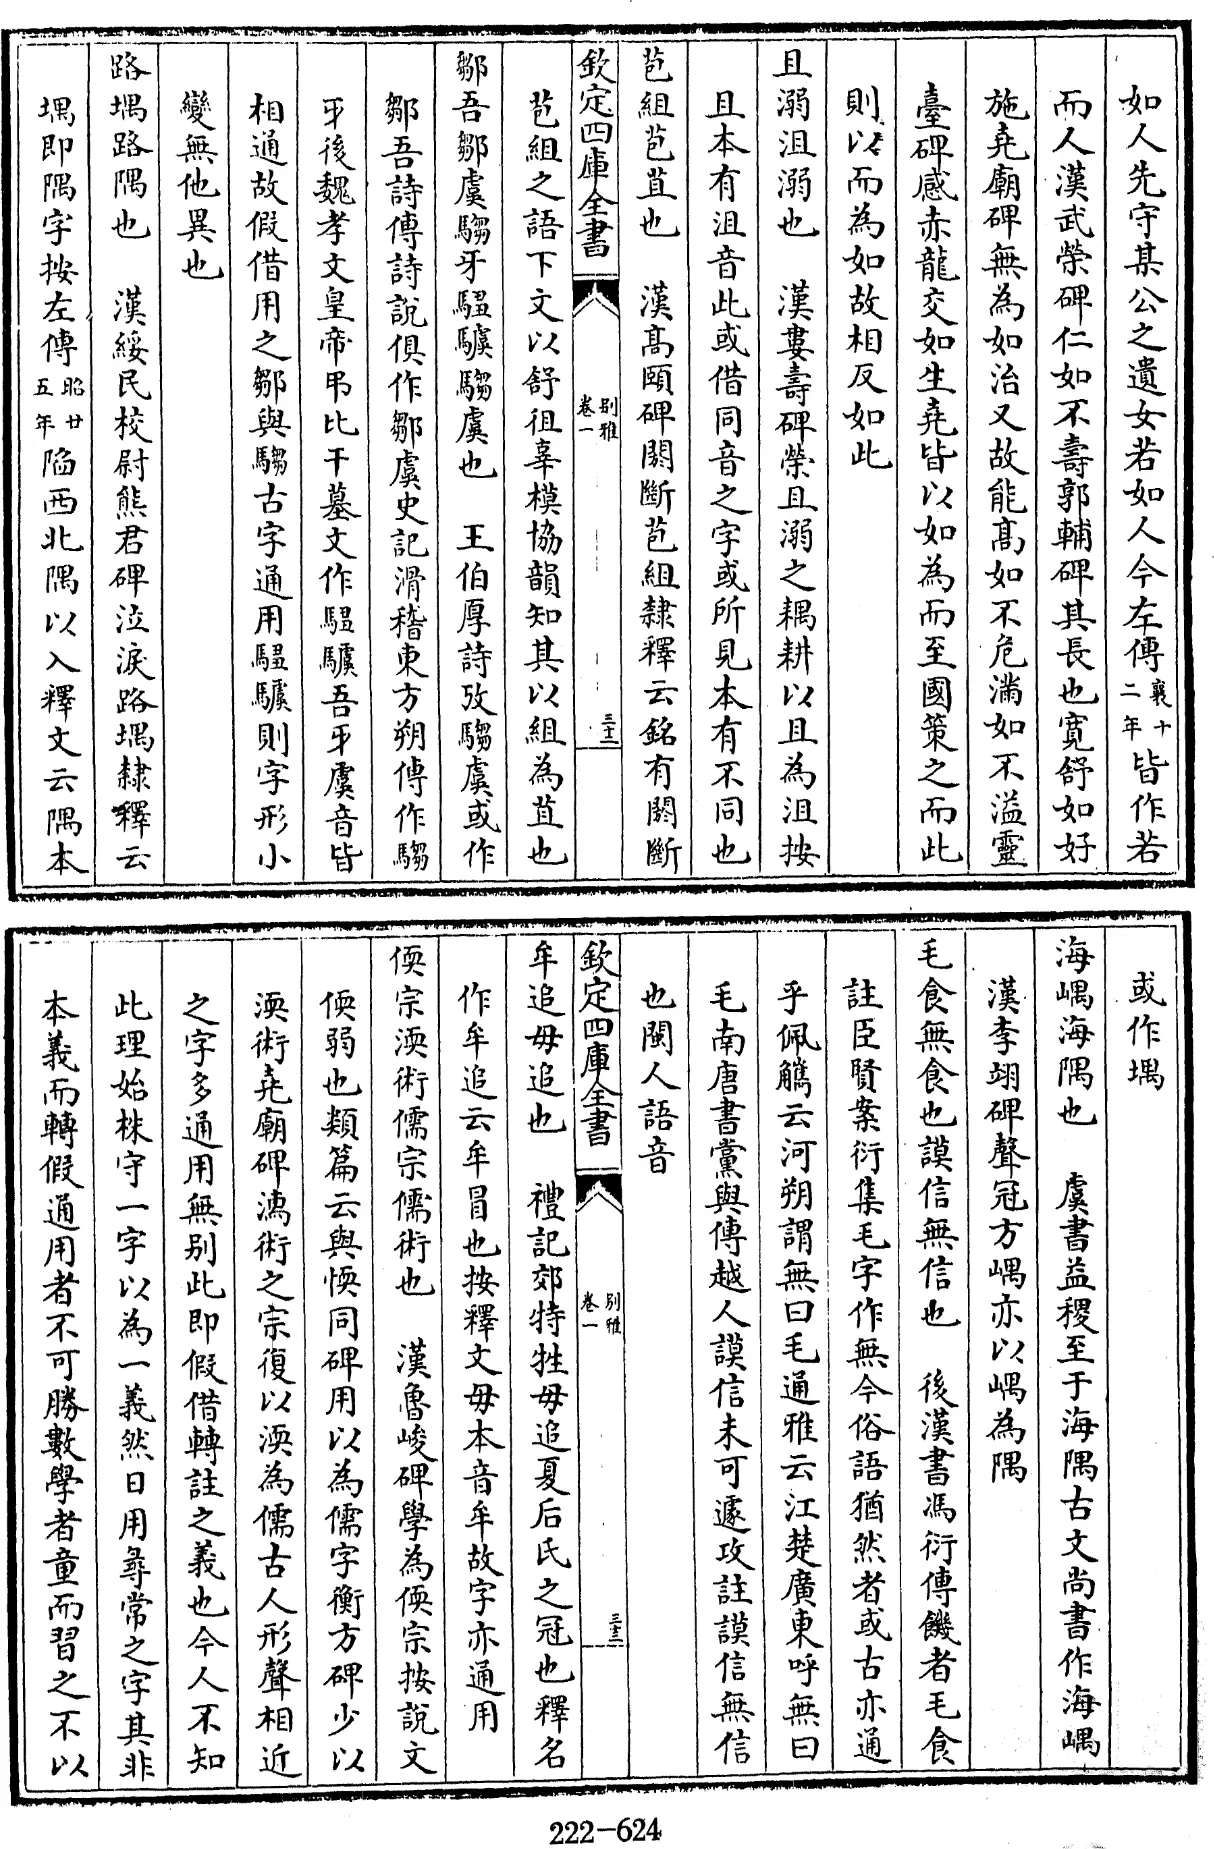 如人先守某公之遺女若如人今左傳襄十二年皆作若
而人漢武榮碑仁如不壽郭輔碑其長也寛舒如好
施堯廟碑無為如治又故能髙如不危滿如不溢靈
臺碑感赤龍交如生堯皆以如為而至國策之而此
則以而為如故相反如此
且溺沮溺也　漢婁壽碑榮且溺之耦耕以且為沮按
且本有沮音此或借同音之字或所見本有不同也
苞組苞苴也　漢髙頤碑闕斷苞組隸釋云銘有闕斷
欽定四庫全書
別雅
卷一
三十二
苞組之語下文以舒徂辜模協韻知其以組為苴也
鄒吾鄒虞騶牙騶虞也　王伯厚詩攷騶虞或作
鄒吾詩傳詩說俱作鄒虞史記滑稽東方朔傳作騶
牙後魏孝文皇帝弔比干墓文作䮗驉吾牙虞音皆
相通故假借用之鄒與騶古字通用䮗驉則字形小
變無他異也
路堣路隅也　漢綏民校尉熊君碑泣涙路堣隸釋云
堣即隅字按左傳昭廿五年陷西北隅以入釋文云隅本
或作堣
海嵎海隅也　虞書益稷至于海隅古文尚書作海嵎
漢李翊碑聲冠方嵎亦以嵎為隅
毛食無食也謨信無信也　後漢書馮衍傳饑者毛食
註臣賢案衍集毛字作無今俗語猶然者或古亦通
乎佩觿云河朔謂無曰毛通雅云江楚廣東呼無曰
毛南唐書黨與傳越人謨信未可遽攻註謨信無信
也閩人語音
欽定四庫全書
別雅
卷一
三十三
牟追毋追也　禮記郊特牲毋追夏后氏之冠也釋名
作牟追云牟冒也按釋文毋本音牟故字亦通用
偄宗渜術儒宗儒術也　漢魯峻碑學為偄宗按說文
偄弱也類篇云與愞同碑用以為儒字衡方碑少以
渜術堯廟碑濡術之宗復以渜為儒古人形聲相近
之字多通用無別此即假借轉註之義也今人不知
此理始株守一字以為一義然日用尋常之字其非
本義而轉假通用者不可勝數學者童而習之不以
222-624